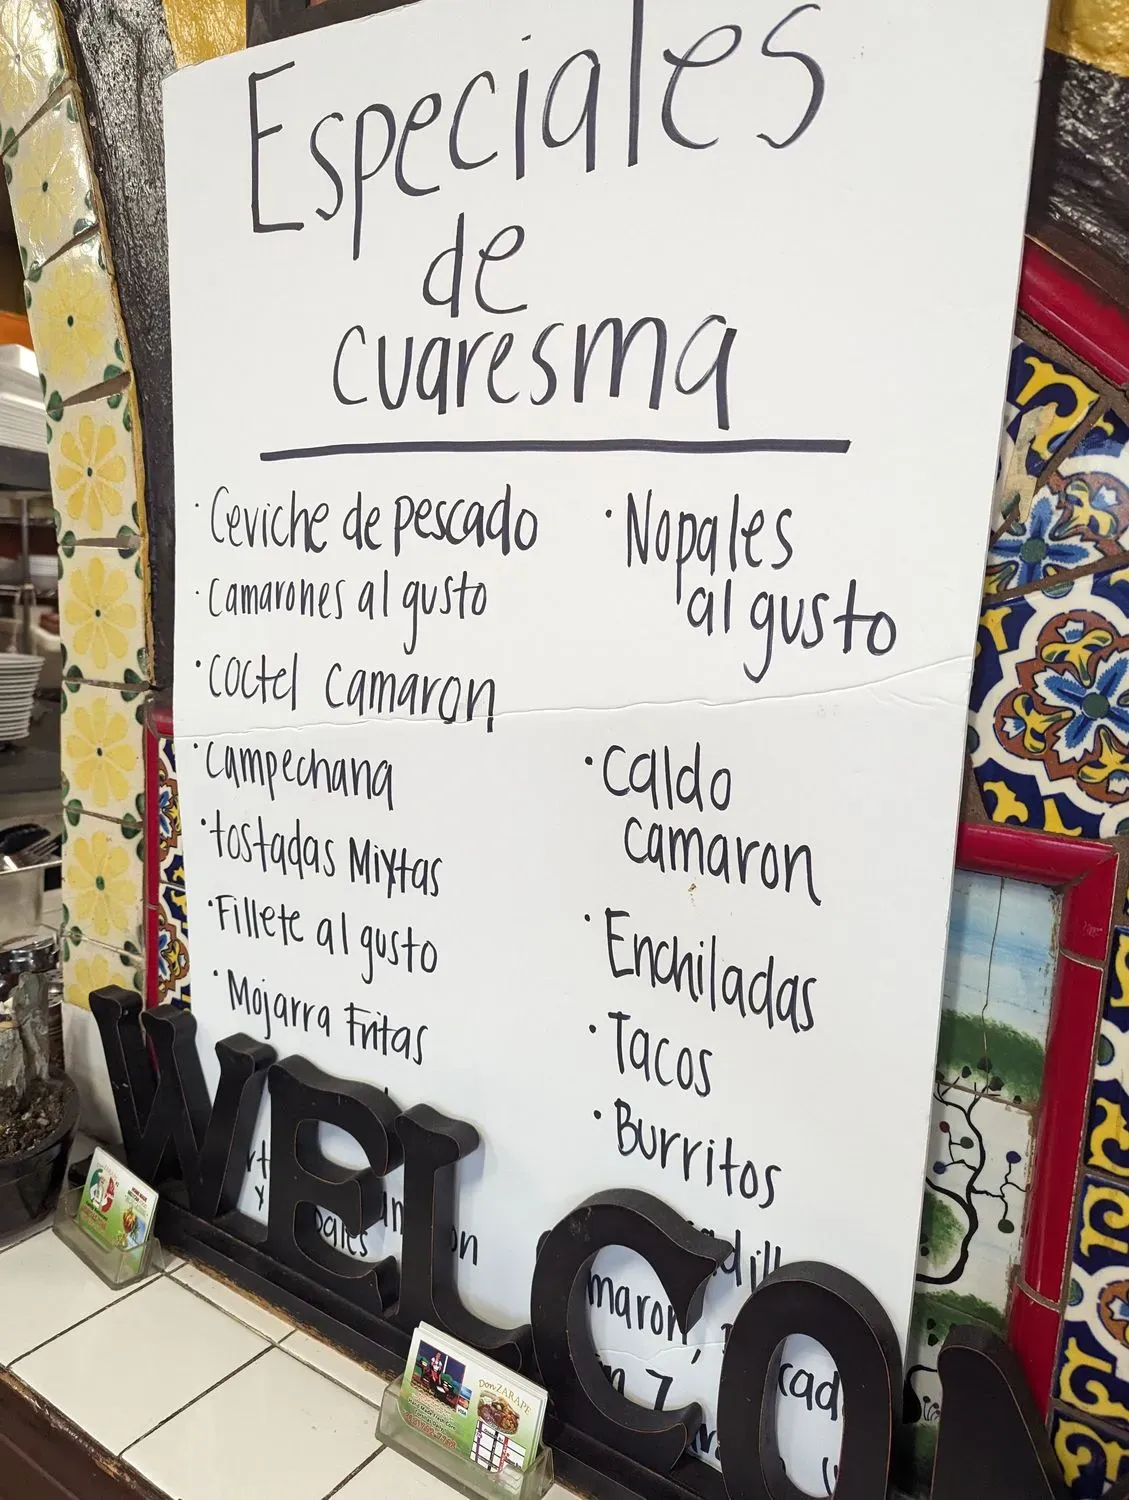 Especiales
de
cuaresma
· Ceviche de pescado
· Camarones al gusto
· Coctel camaron
· Campechana
· tostadas Mixtas
· Fillete al gusto
· Mojarra Fritas
· Nopales
al gusto
· Caldo
camaron
· Enchiladas
· Tacos
· Burritos
WELCO
Don ZARAPE